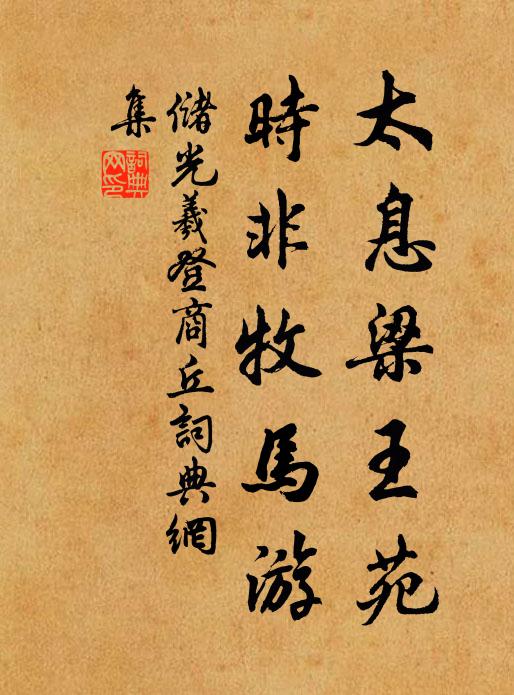 太息梁王苑
時非牧馬游
儲光羲登商丘詞典網
集
詞典
网印